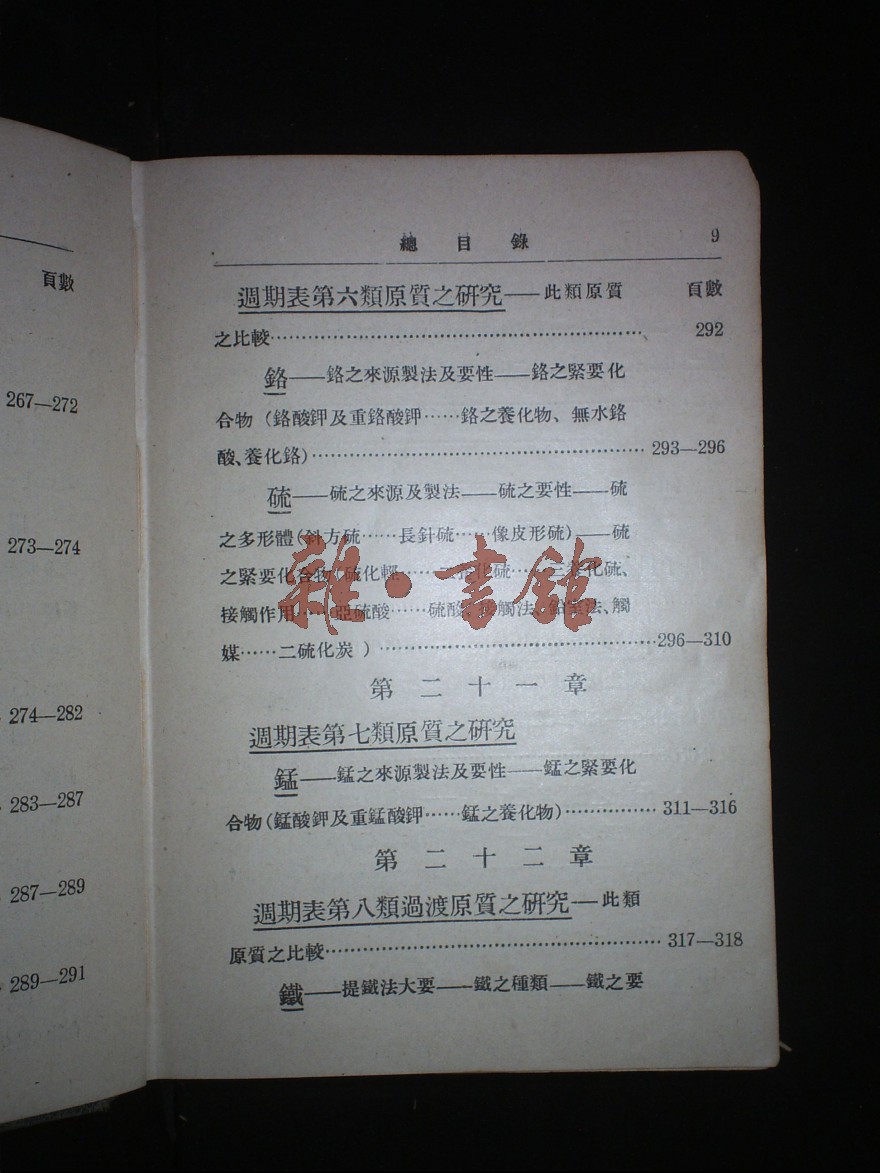 頁數
267—272
273—274
274—282
283—287
287—289
289—291
總目錄 9
週期表第六類原質之研究——此類原質 頁數
之比較…………………………………………………… 292
鉻——鉻之來源製法及要性——鉻之緊要化
合物(鉻酸鉀及重鉻酸鉀……鉻之養化物、無水鉻
酸、養化鉻)………………………………………… 293—296
硫——硫之來源及製法——硫之要性——硫
之多形體(斜方硫……長針硫……像皮形硫)——硫
之緊要化合物(硫化輕……二養化硫……三養化硫、
接觸作用……亞硫酸……硫酸、接觸法、鉛室法、觸
媒……二硫化炭)………………………………… 296—310
雜·書館
第二十一章
週期表第七類原質之研究
錳——錳之來源製法及要性——錳之緊要化
合物(錳酸鉀及重錳酸鉀……錳之養化物)…………… 311—316
第二十二章
週期表第八類過渡原質之研究——此類
原質之比較…………………………………………… 317—318
鐵——提鐵法大要——鐵之種類——鐵之要